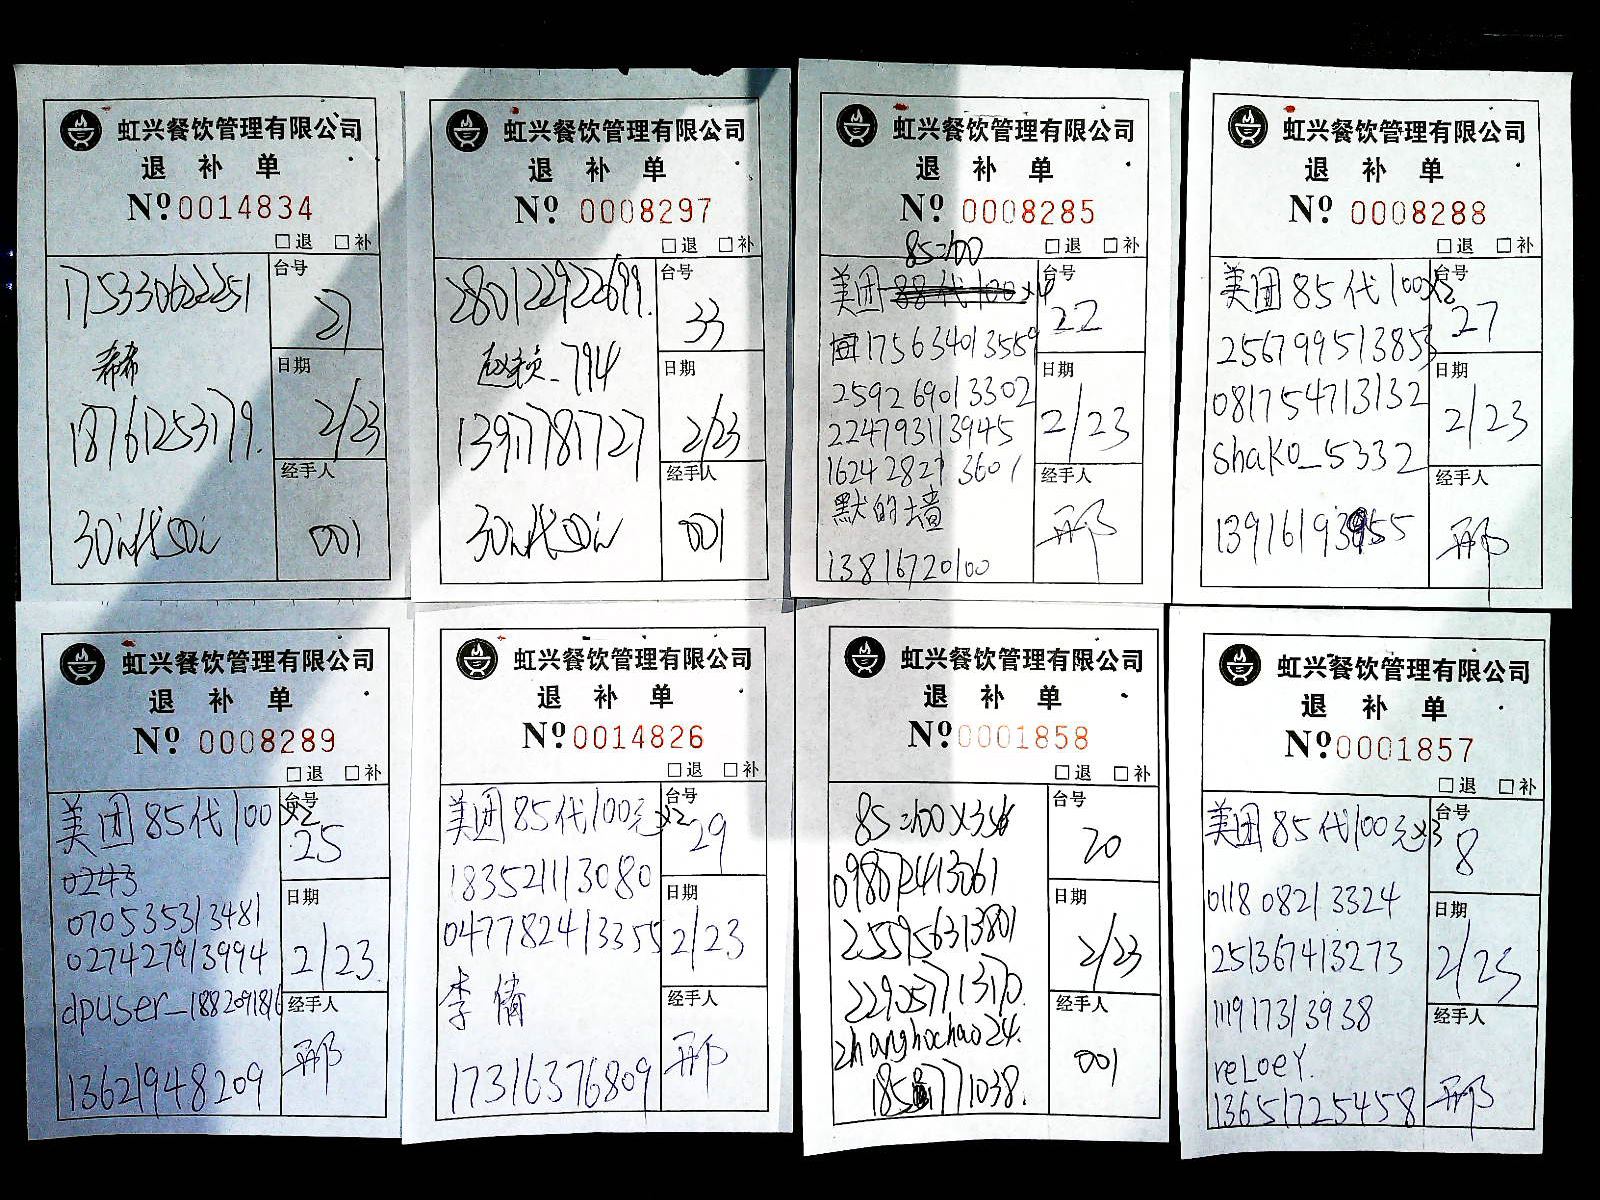 虹兴餐饮管理有限公司
退 补 单
Nº 0014834
□退 □补
175330622251
台号
21
希希
日期
2/23
18761253179.
经手人
001
30代50
虹兴餐饮管理有限公司
退 补 单
Nº 0008297
□退 □补
280122922699.
台号
33
794
日期
2/23
13917781727
经手人
001
30代50
虹兴餐饮管理有限公司
退 补 单
Nº 0008285
□退 □补
85=100
美团 88代100 x4
台号
22
175634013559
259269013302
日期
2/23
224793113945
162428273601
经手人
邢
默的墙
13816720100
虹兴餐饮管理有限公司
退 补 单
Nº 0008288
□退 □补
美团85代100x2
台号
27
256799513853
日期
2/23
081754713132
shako_5332
经手人
邢
13916193955
虹兴餐饮管理有限公司
退 补 单
Nº 0008289
□退 □补
美团85代100x2
台号
25
0243
070535313481
日期
2/23.
027427913994
dpuser_1882091816
经手人
邢
13621948209
虹兴餐饮管理有限公司
退 补 单
Nº 0014826
□退 □补
美团85代100元x2
台号
29
183521113080
日期
2/23
047782413355
李倩
经手人
邢
17316376809
虹兴餐饮管理有限公司
退 补 单
Nº 0001858
□退 □补
85=100x3
台号
20
098072413061
255956313801
日期
2/23
229057713170.
zhanghochao24.
经手人
001
虹兴餐饮管理有限公司
退 补 单
Nº 0001857
□退 □补
美团85代100元x3
台号
8
011808213324
日期
2/23
251367413273
111917313938
经手人
邢
reLoeY.
13651725458